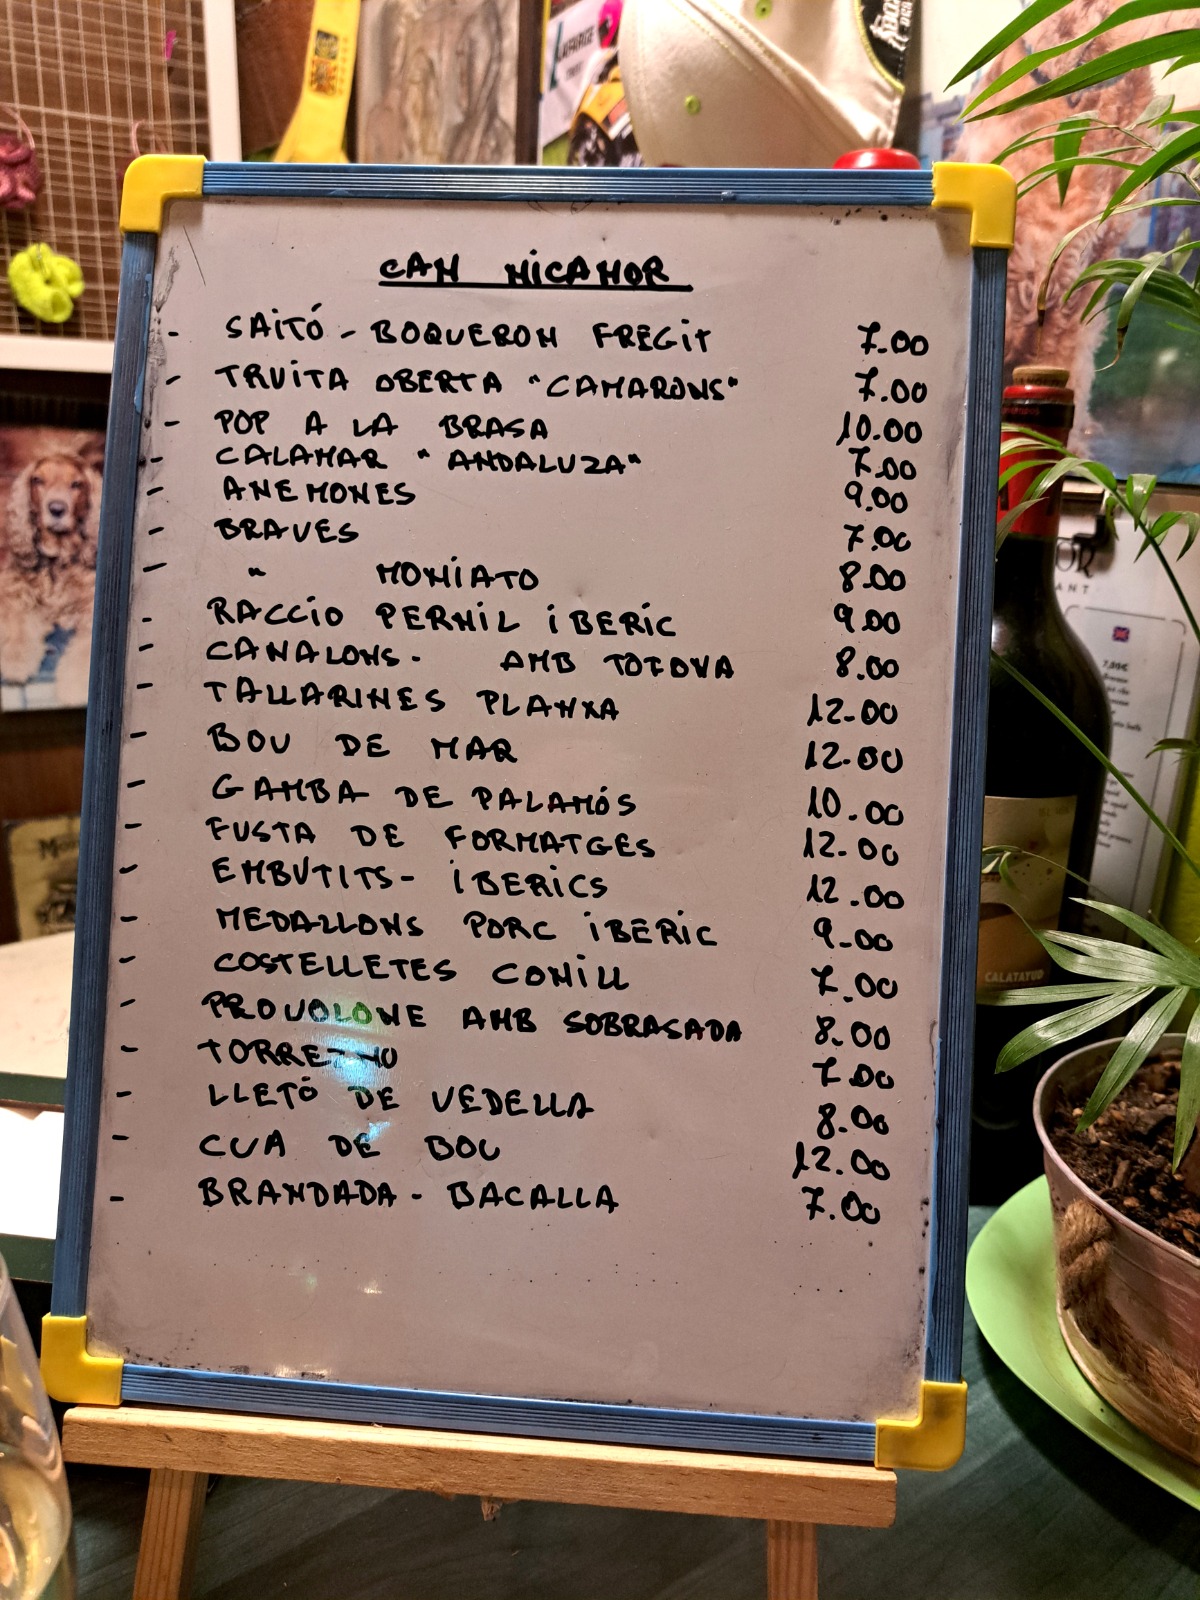 CAN NICANOR
- SAITÓ - BOQUERON FREGIT 7.00
- TRUITA OBERTA "CAMARONS" 7.00
- POP A LA BRASA 10.00
- CALAMAR "ANDALUZA" 7.00
- ANEMONES 9.00
- BRAVES 7.00
- " MONIATO 8.00
- RACCIO PERNIL IBERIC 9.00
- CANALONS - AMB TOFONA 8.00
- TALLARINES PLANXA 12.00
- BOU DE MAR 12.00
- GAMBA DE PALAMÓS 10.00
- FUSTA DE FORMATGES 12.00
- EMBUTITS - IBERICS 12.00
- MEDALLONS PORC IBERIC 9.00
- COSTELLETES CONILL 7.00
- PROVOLONE AMB SOBRASADA 8.00
- 7.00
- LLETÓ DE VEDELLA 8.00
- CUA DE BOU 12.00
- BRANDADA - BACALLA 7.00
CALATAYUD